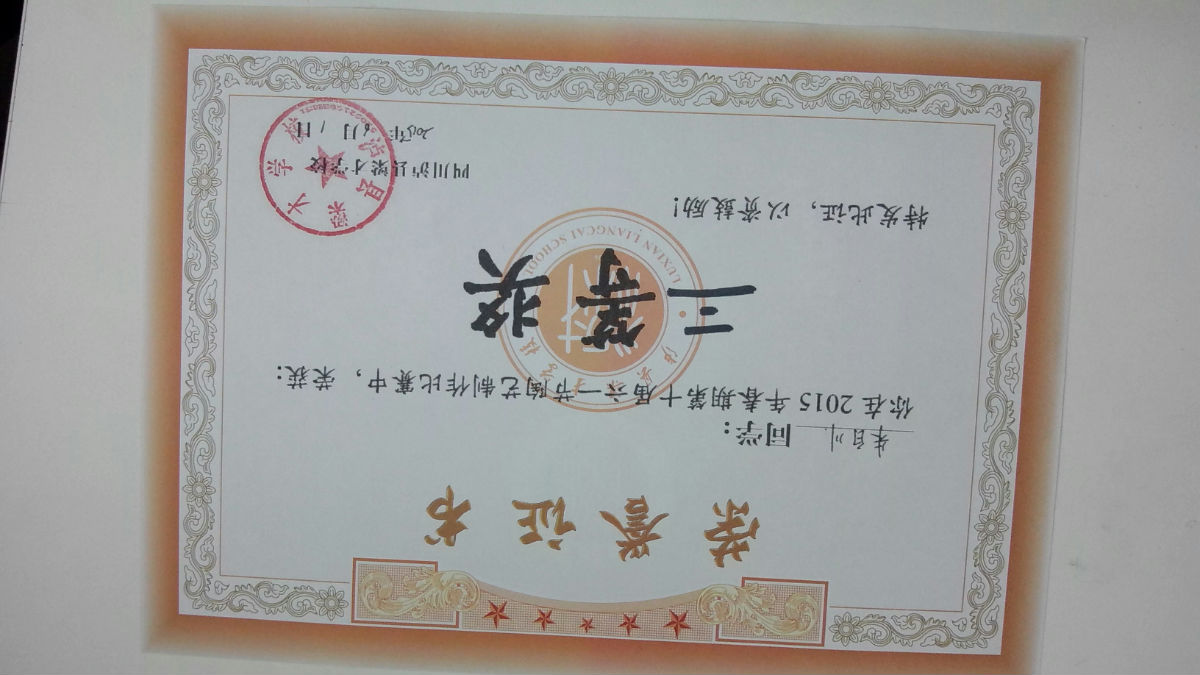 荣誉证书
朱自川 同学：
你在2015年春期第十届六一节陶艺制作比赛中，荣获：
三等奖
LUXIAN LIANGCAI SCHOOL
特发此证，以资鼓励！
四川泸县梁才学校
2015年6月1日
泸县梁才学校